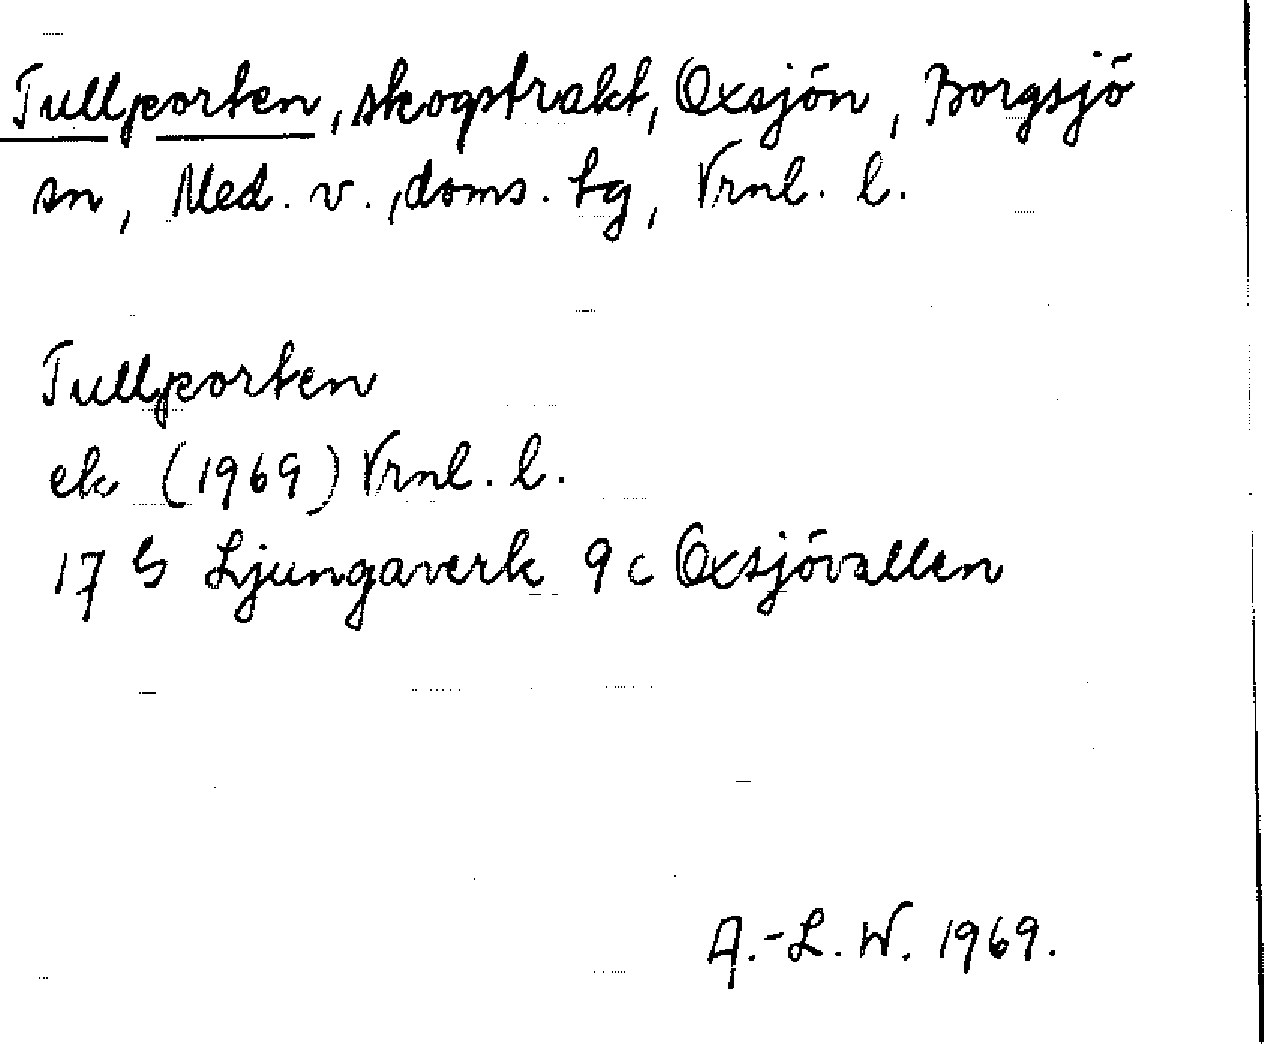 Tullporten, skogstrakt, Oxsjön, Borgsjö
sn, Med. v., doms. tg, Vrnl. l.
Tullporten
ek (1969) Vrnl. l.
17 G Ljungaverk 9 c Oxsjövallen
A.-L. W. 1969.